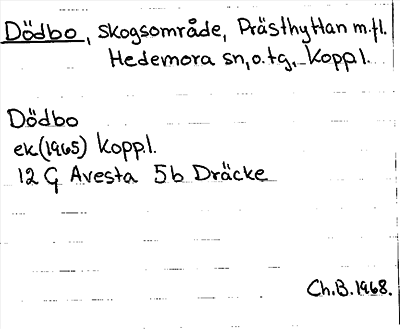 Dödbo, skogsområde, Prästhyttan m.fl.
Hedemora sn, o. tg, Koppl.
Dödbo
ek (1965) Koppl.
12 G Avesta 5b Dräcke
Ch.B. 1968.